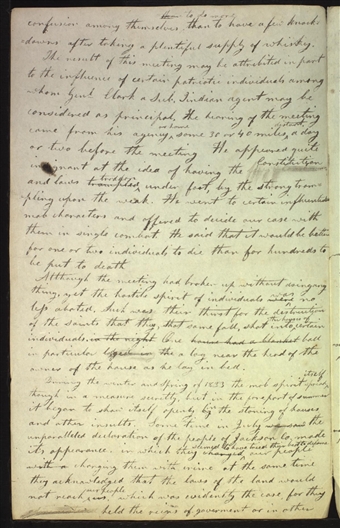 the to do more
confusion among themselves, than to have a few knock-
downs after taking a plentiful supply of whisky.
The result of this meeting may be attributed in part
to the influence of certain patriotic individuals among
whom Genl. Clark a sub. Indian agent may be
considered as principal, He hearing of the meeting
came from his agency, some 30 or 40 miles, a day
or two before the meeting He appeared quite
indignant at the idea of having the Constitution
and laws trampled under foot, by the strong tram-
pling upon the weak. He went to certain influential
mob characters and offered to decide our case with
them in single combat. He said that it would be better
for one or two individuals to die than for hundreds to
be put to death
Although the meeting had broken up without doing any
thing, yet the hostile spirit of individuals no
less abated, such was their thirst for the destruction
of the saints that they, that same fall, shot into the houses of certain
individuals, One ball
in particular the a log near the head of the
owner of the house as he lay in bed.
During the winter and Spring of 1833 the mob spirit itself
though in a measure secretly, but in the forepart of summer
it began to show itself openly by the stoning of houses
and other insults. Some time in July the
unparalleled declaration of the people of Jackson Co. made
its appearance. in which they our people
with a charging them with crime at the same time
they acknowledged that the laws of the land would
not reach our people, which was evidently the case, for they
held the reigns of government or in other